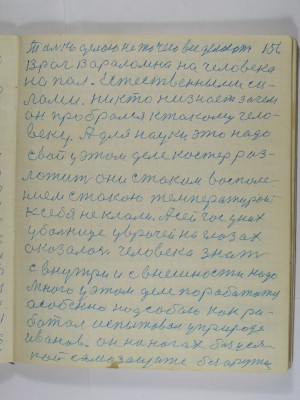 так не делаю не точно все делают 156
Враг варалом на человека
напал. Естественными си-
лами. никто не знает зачем
он пробрался к такому чело-
веку. А для науки это надо
свой у этом деле костер раз-
ложит они с таком восполе-
нием с такою температурой
к себя не клали. А сейчас у них
у больнице у врачей на глазах
оказалось. человека знат
с внутри и с внешности надо
много у этом деле поработат
особенно над собою как ра-
ботал испытовал у природе
Иванов. он на ногах без уся-
кой самозащите безоружие